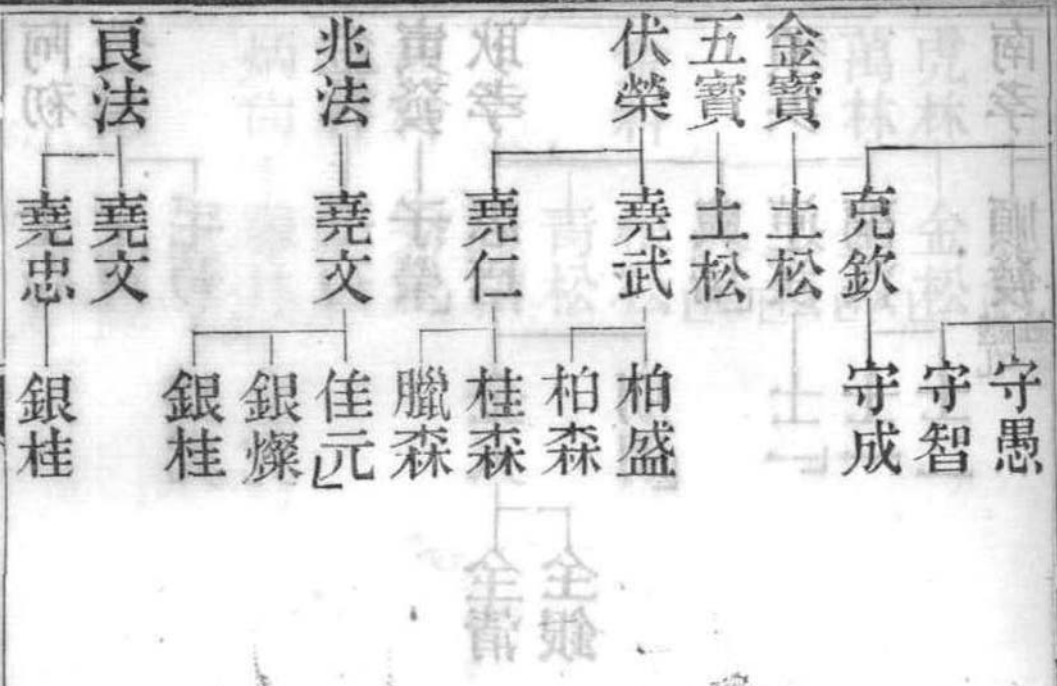 金寶
五寶
伏榮
兆法
良法
克欽
土松
土松
堯武
堯仁
堯文
堯文
堯忠
守愚
守智
守成
柏盛
柏森
桂森
臘森
佳元
銀燦
銀桂
銀桂